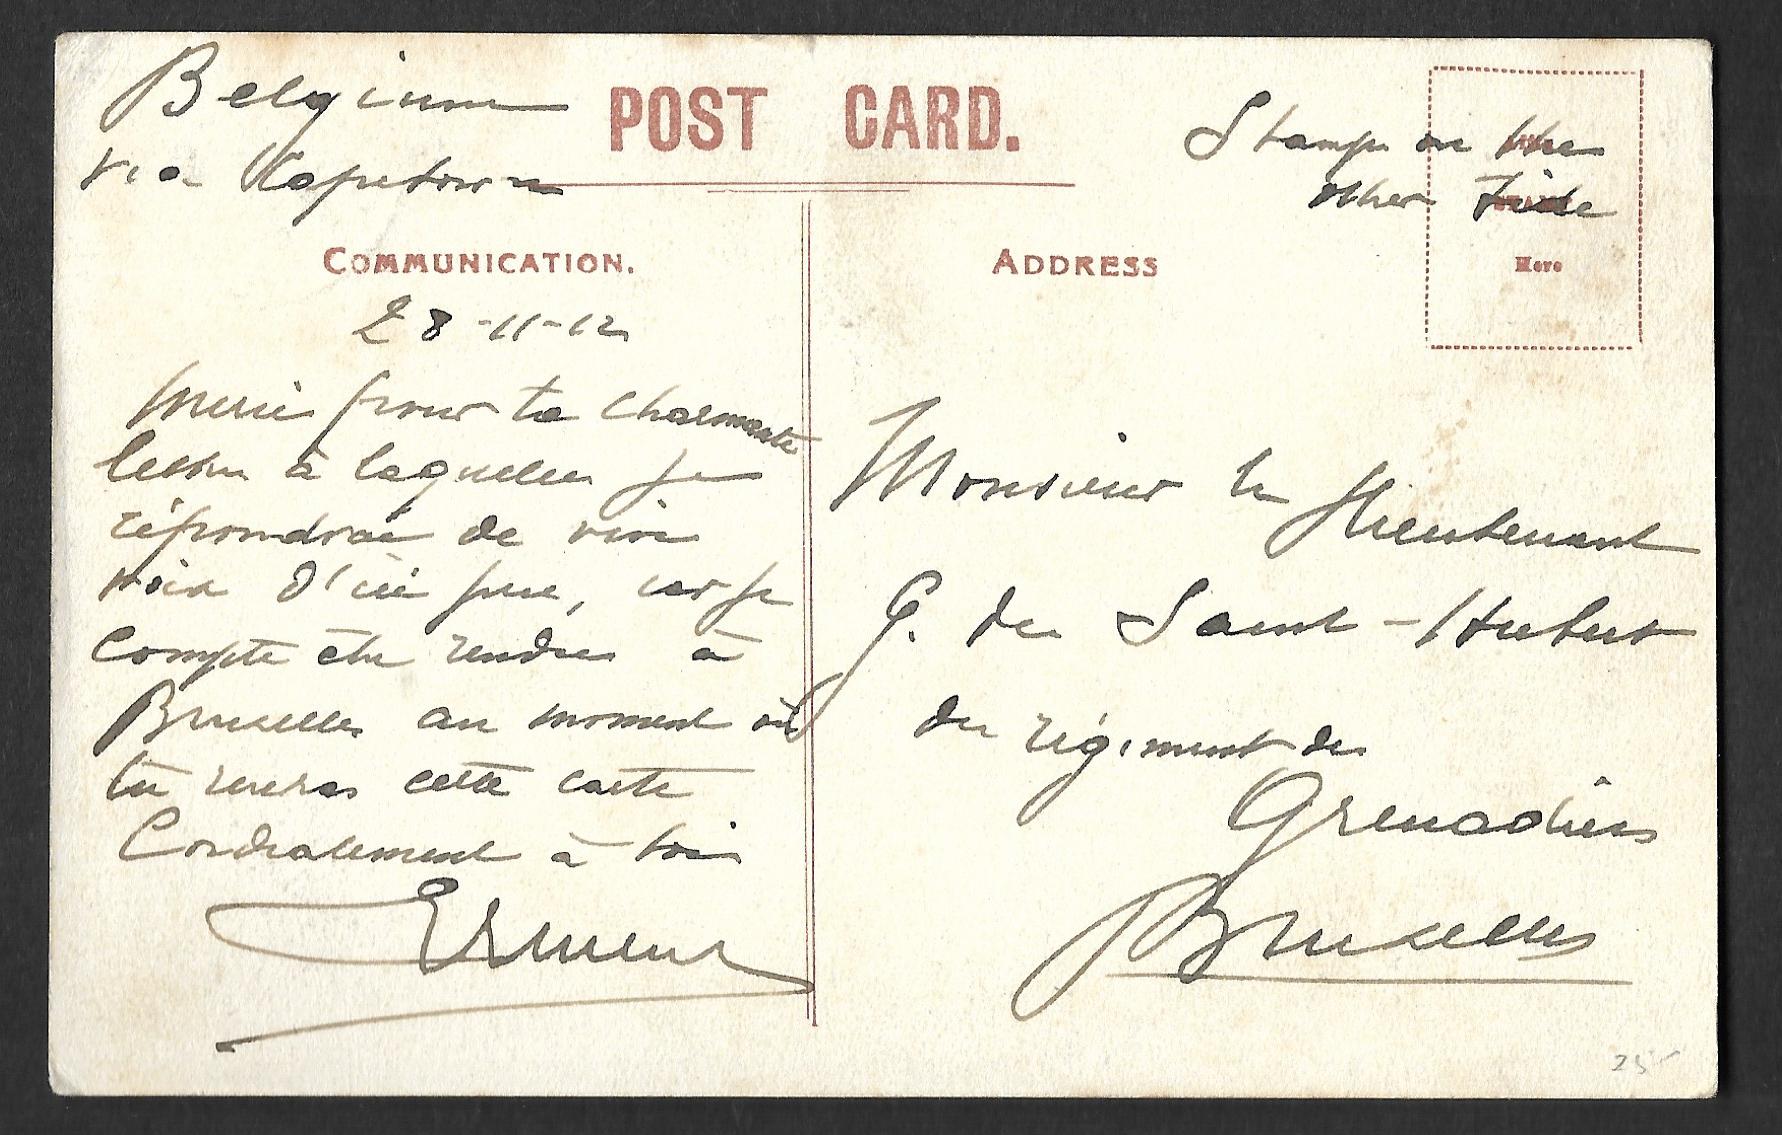 Belgium
via Capetown
POST CARD.
Stamp on the
other side
Here
COMMUNICATION.
ADDRESS
28-11-12
Merci pour ta charmante
lettre à laquelle je
répondrai de vive
voix d'ici peu, car je
compte être rendu à
Bruxelles au moment où
tu recevras cette carte
Cordialement à toi
Monsieur le Lieutenant
G. de Saint-Hubert
du régiment des
Grenadiers
Bruxelles
25